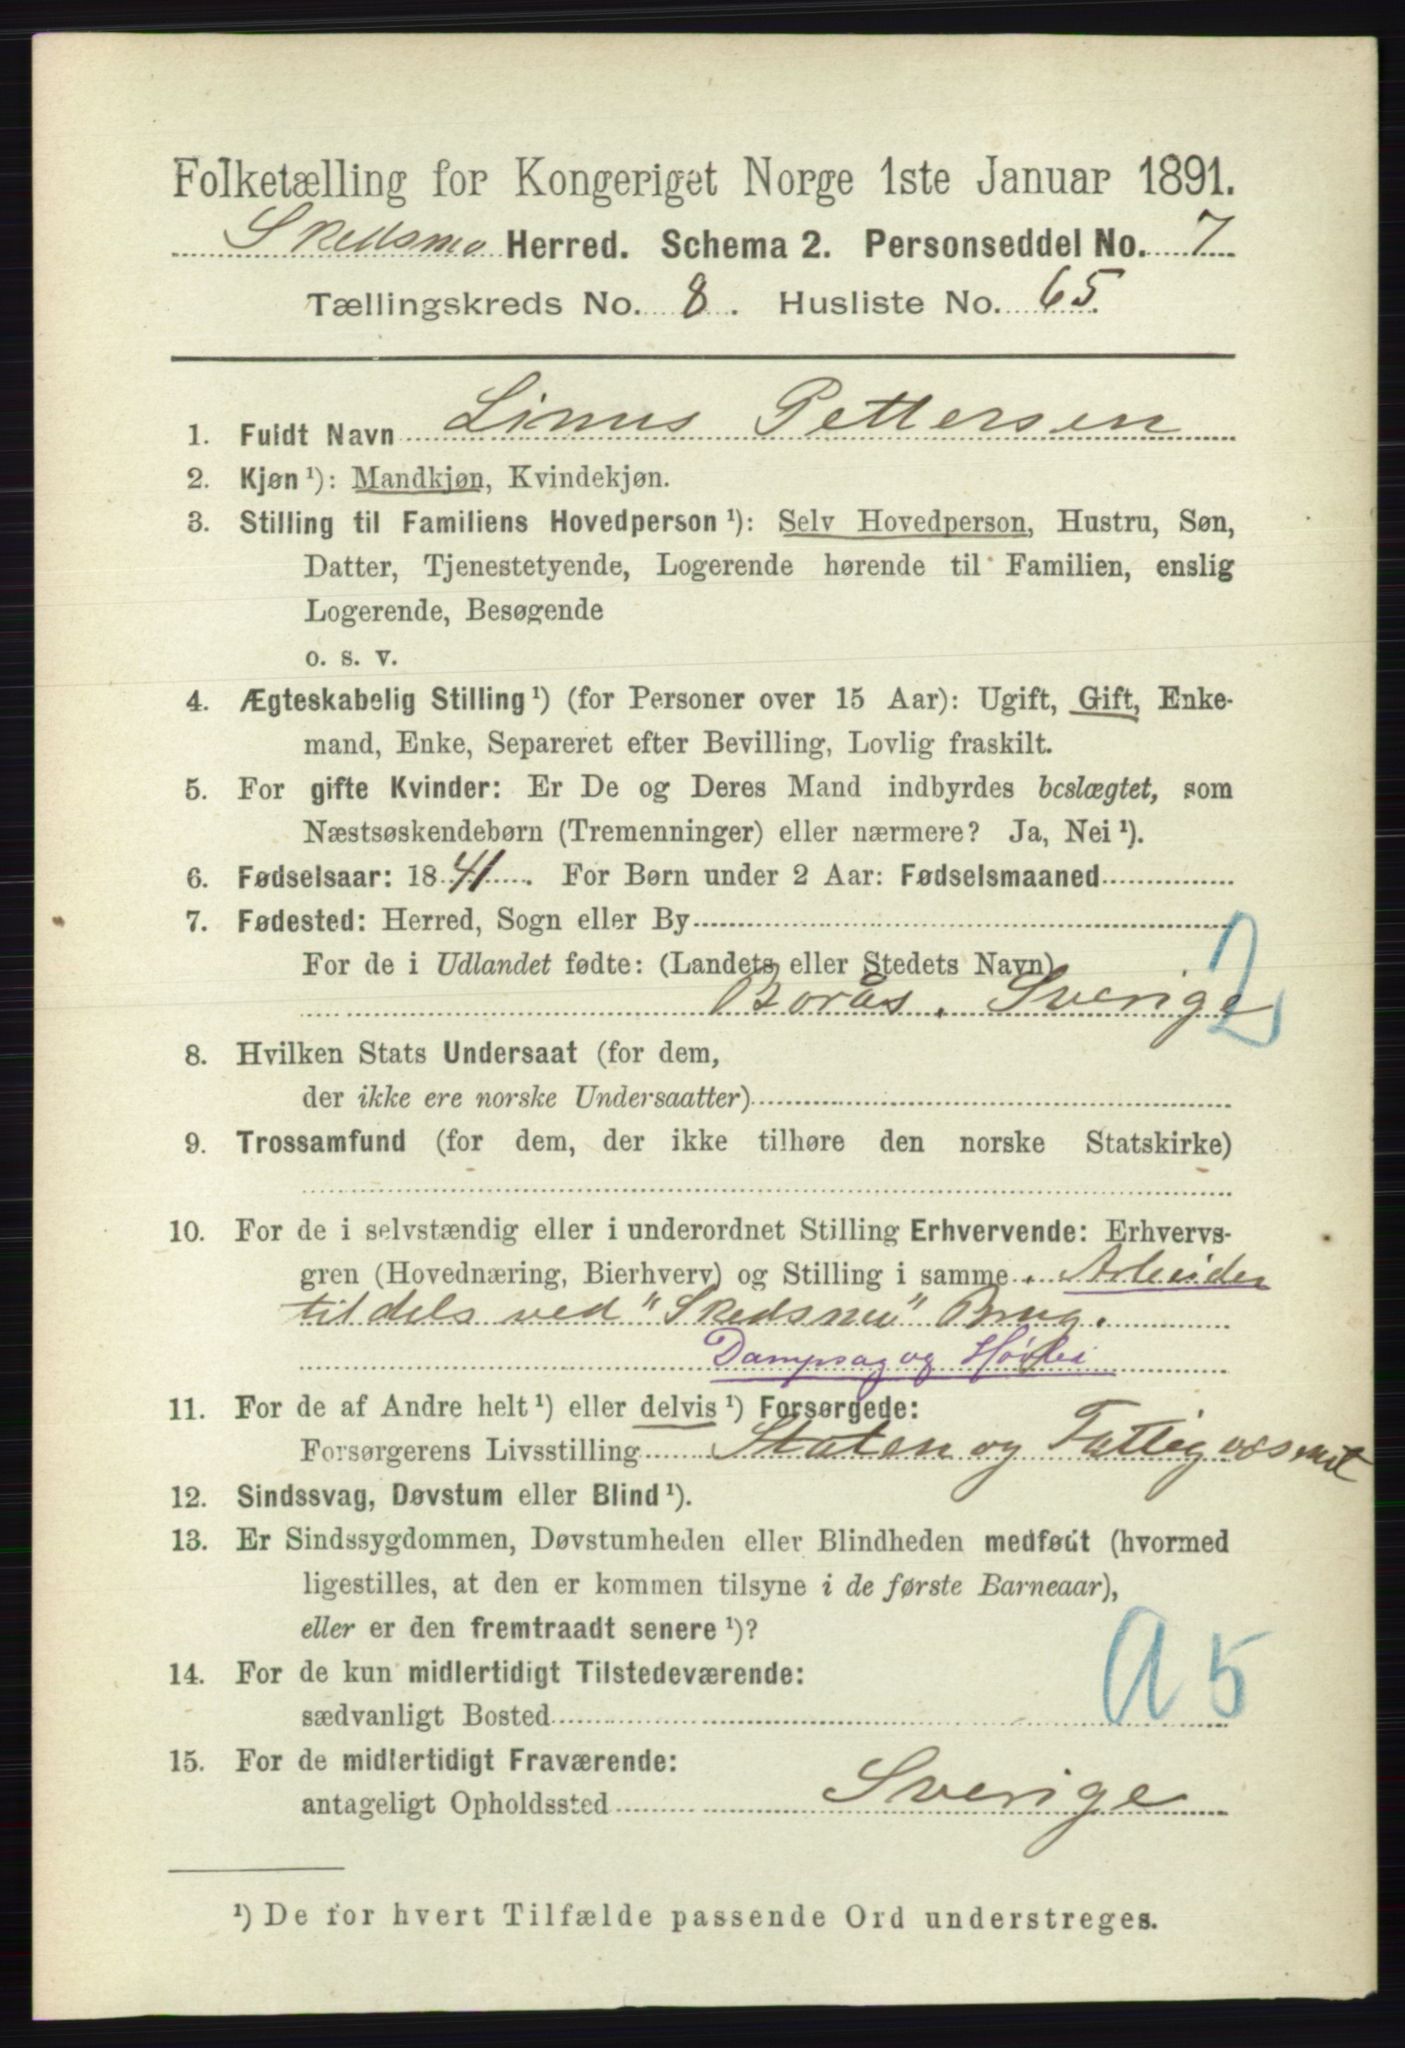 Folketælling for Kongeriget Norge 1ste Januar 1891.
Skedsmo Herred. Schema 2. Personseddel No. 7
Tællingskreds No. 8. Husliste No. 65.
1. Fuldt Navn Linus Pettersen
2. Kjøn ¹): Mandkjøn, Kvindekjøn.
3. Stilling til Familiens Hovedperson ¹): Selv Hovedperson, Hustru, Søn,
Datter, Tjenestetyende, Logerende hørende til Familien, enslig
Logerende, Besøgende
o. s. v.
4. Ægteskabelig Stilling ¹) (for Personer over 15 Aar): Ugift, Gift, Enke-
mand, Enke, Separeret efter Bevilling, Lovlig fraskilt.
5. For gifte Kvinder: Er De og Deres Mand indbyrdes beslægtet, som
Næstsøskendebørn (Tremenninger) eller nærmere? Ja, Nei ¹).
6. Fødselsaar: 1841. For Børn under 2 Aar: Fødselsmaaned
7. Fødested: Herred, Sogn eller By
For de i Udlandet fødte: (Landets eller Stedets Navn)
Borås. Sverige 2
8. Hvilken Stats Undersaat (for dem,
der ikke ere norske Undersaatter)
9. Trossamfund (for dem, der ikke tilhøre den norske Statskirke)
10. For de i selvstændig eller i underordnet Stilling Erhvervende: Erhvervs-
gren (Hovednæring, Bierhverv) og Stilling i samme. Arbeider
tildels ved "Skedsmo" Brug.
Dampsag og Høvleri
11. For de af Andre helt ¹) eller delvis ¹) Forsørgede:
Forsørgerens Livsstilling Staten og Fattigvæsenet
12. Sindssvag, Døvstum eller Blind ¹).
13. Er Sindssygdommen, Døvstumheden eller Blindheden medfødt (hvormed
ligestilles, at den er kommen tilsyne i de første Barneaar),
eller er den fremtraadt senere ¹)?
14. For de kun midlertidigt Tilstedeværende:
sædvanligt Bosted a 5
15. For de midlertidigt Fraværende:
antageligt Opholdssted Sverige
¹) De for hvert Tilfælde passende Ord understreges.